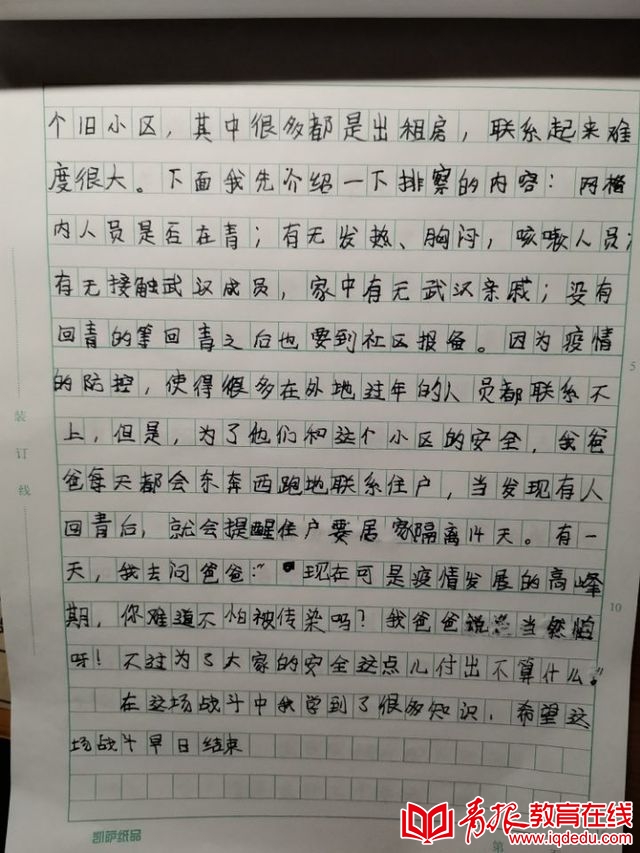 个旧小区，其中很多都是出租房，联系起来难
度很大。下面我先介绍一下排察的内容：网格
内人员是否在青；有无发热、胸闷，咳嗽人员；
有无接触武汉成员，家中有无武汉亲戚；没有
回青的等回青之后也要到社区报备。因为疫情
的防控，使得很多在外地过年的人员都联系不
上，但是，为了他们和这个小区的安全，我爸
爸每天都会东奔西跑地联系住户，当发现有人
回青后，就会提醒住户要居家隔离14天。有一
天，我去问爸爸：“现在可是疫情发展的高峰
期，你难道不怕被传染吗？我爸爸说：当然怕
呀！不过为了大家的安全这点儿付出不算什么。”
在这场战斗中我学到了很多知识，希望这
场战斗早日结束
装订线
5
10
凯萨纸品
第
青报教育在线
www.iqdedu.com